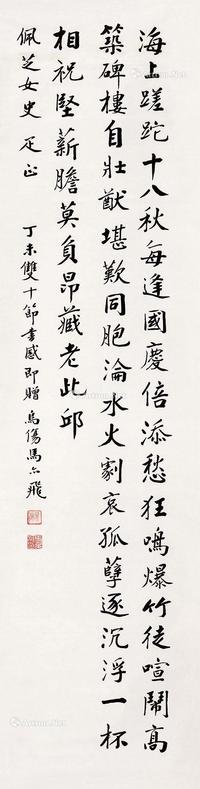 海上蹉跎十八秋每逢國慶倍添愁狂鳴爆竹徒喧鬧高
築碑樓自壯猷堪歎同胞淪水火劇哀孤孽逐沉浮一杯
相祝堅薪膽莫負昂藏老此邱
佩芝女史 疋正
丁未雙十節書感即贈 烏傷馬亦飛